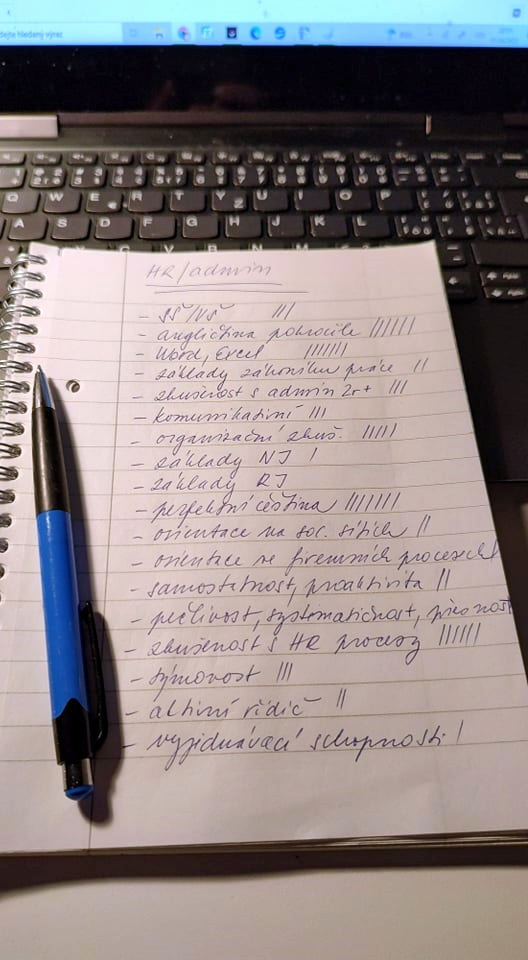 dejte hledaný výraz
Q W E R T Z U I O P
A S D F G H J K L
HR/admin
- SŠ/VŠ |||
- angličtina pokročile ||||||
- Word, Excel |||||||
- základy zákoníku práce ||
- zkušenost s admin 2r+ |||
- komunikativní |||
- organizační zkuš. |||||
- základy NJ |
- základy RJ
- perfektní čeština |||||||
- orientace na soc. sítích ||
- orientace ve firemních procesech |
- samostatnost, proaktivita ||
- pečlivost, systematičnost, přesnost
- zkušenost s HR procesy ||||||
- týmovost |||
- aktivní řidič ||
- vyjednávací schopnosti |